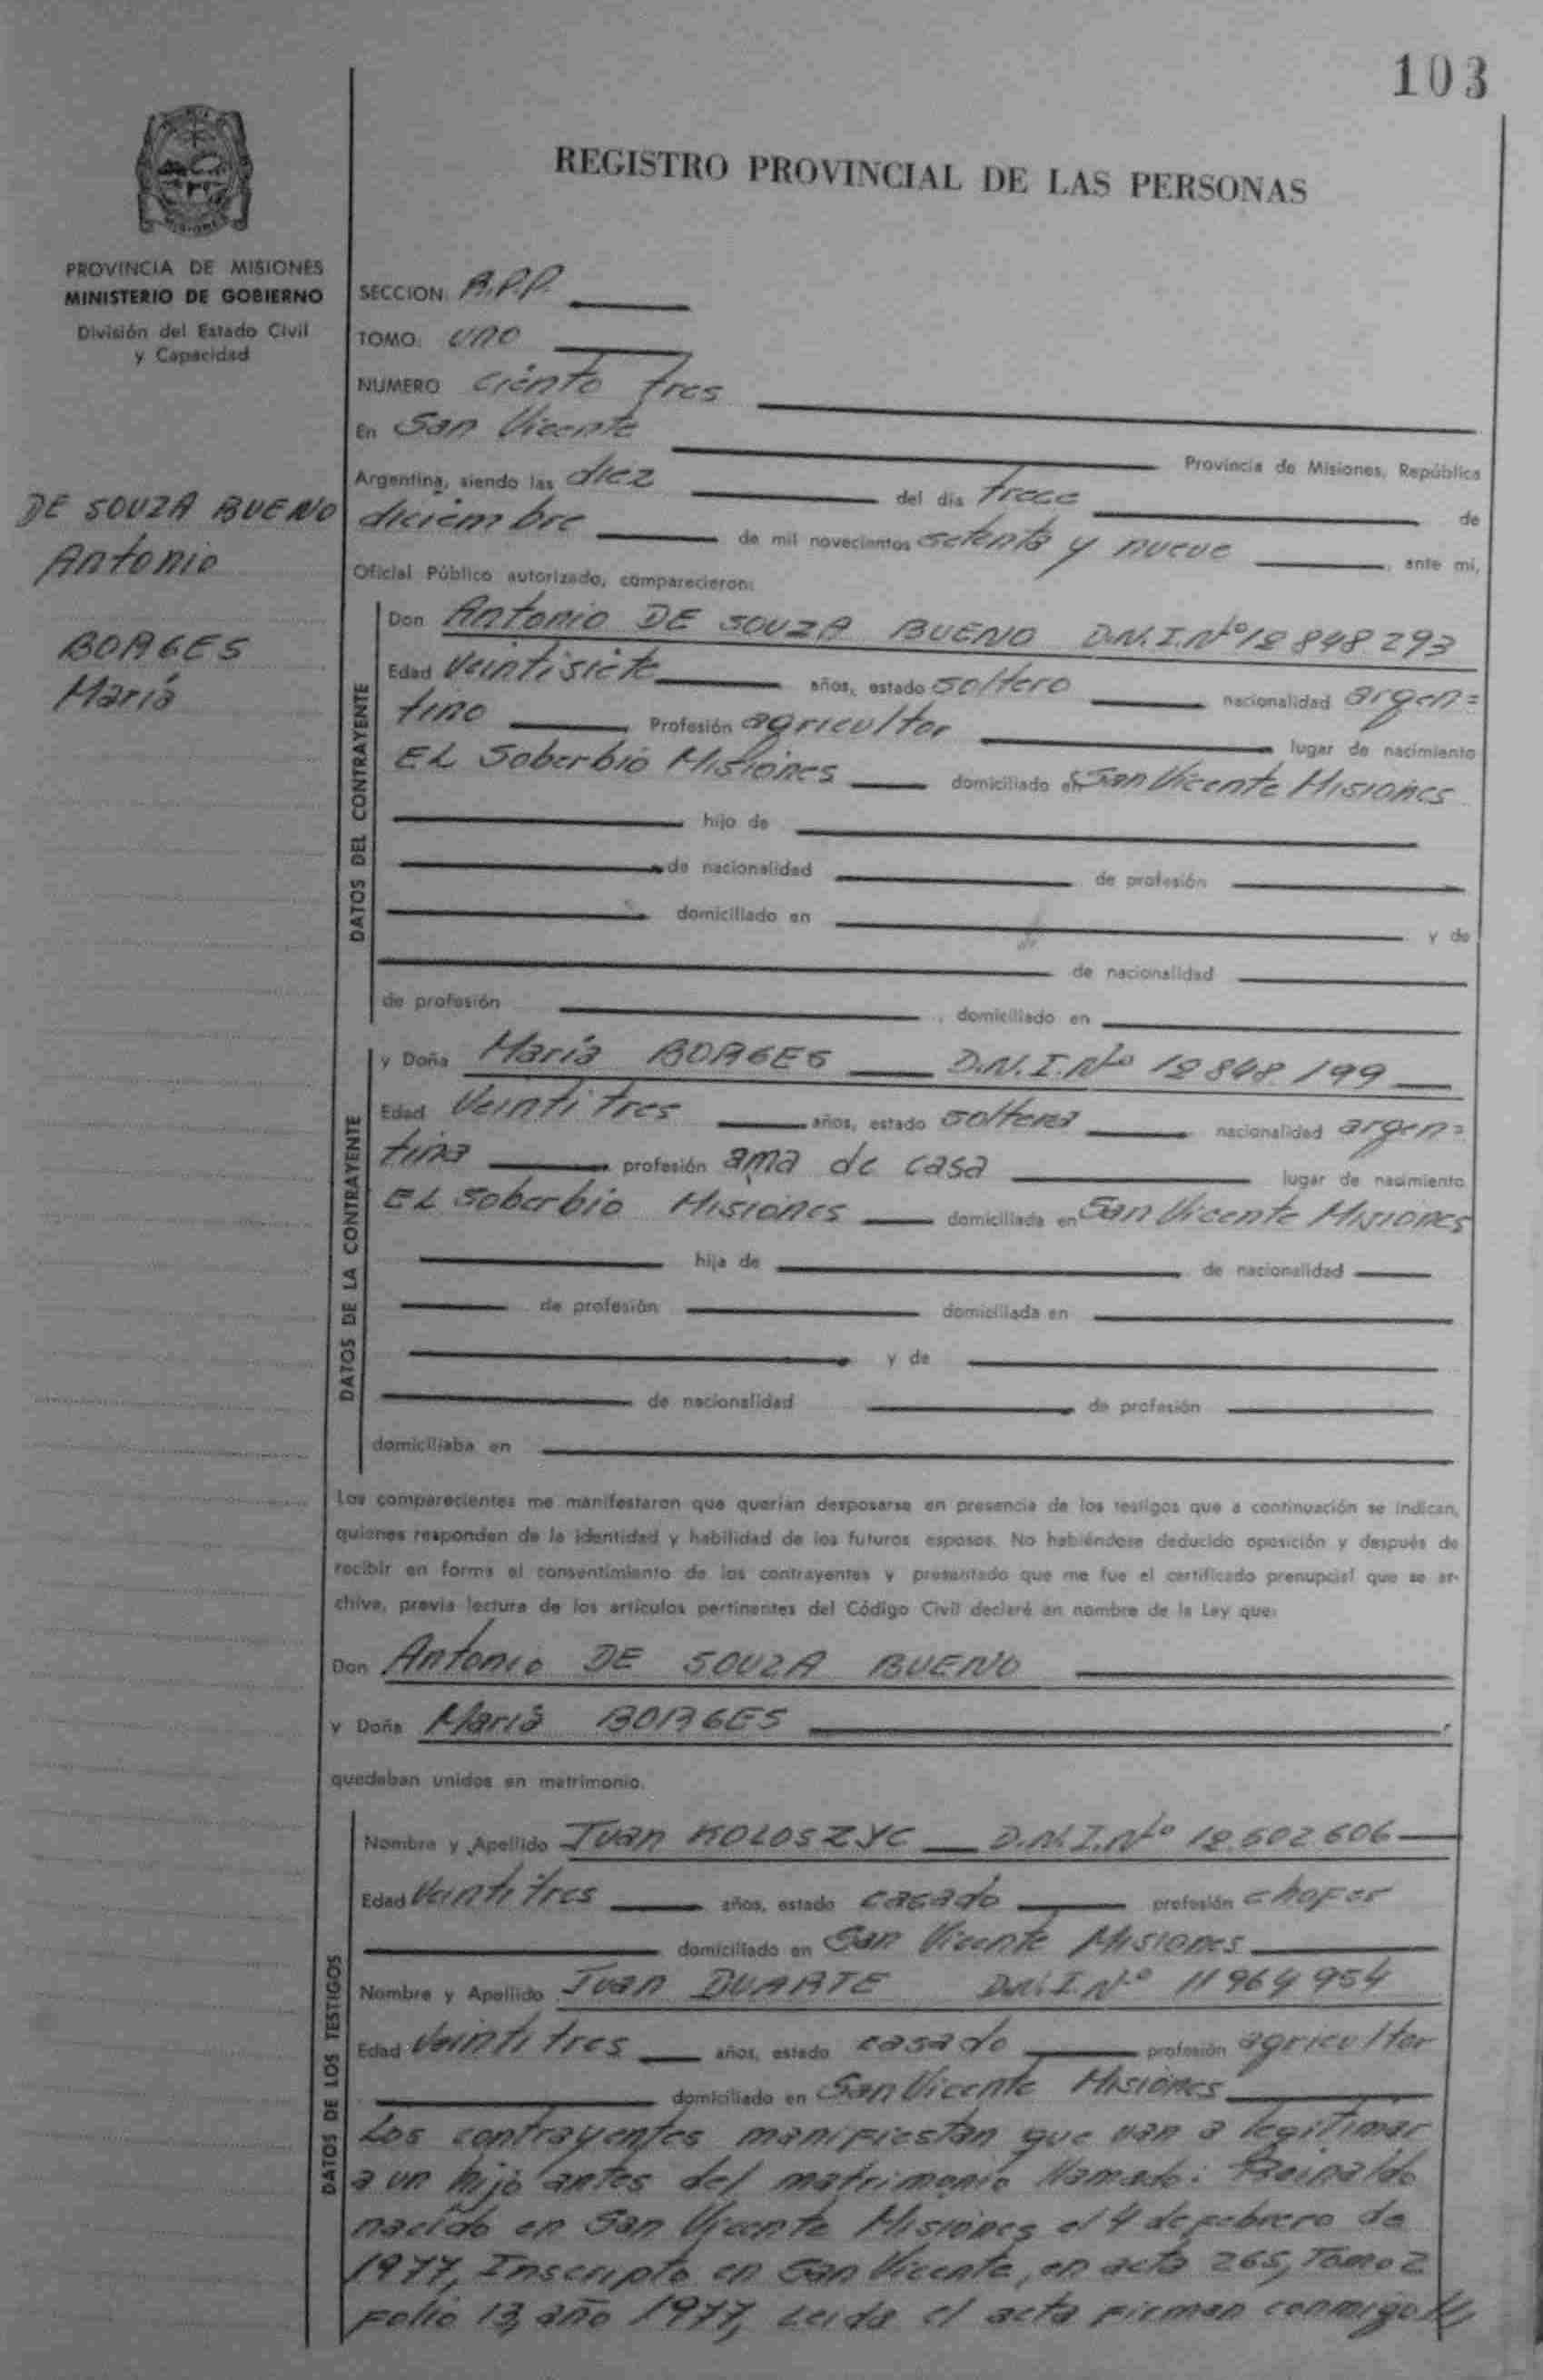 103
REGISTRO PROVINCIAL DE LAS PERSONAS
MISIONES
PROVINCIA DE MISIONES
MINISTERIO DE GOBIERNO
División del Estado Civil
y Capacidad
DE SOUZA BUENO
Antonio
BORGES
María
SECCION: R.P.P.
TOMO: uno
NUMERO ciento tres
En San Vicente Provincia de Misiones, República
Argentina, siendo las diez del día trece de
diciembre de mil novecientos setenta y nueve ante mi,
Oficial Público autorizado, comparecieron:
DATOS DEL CONTRAYENTE
Don Antonio DE SOUZA BUENO D.N.I.Nº 12 848 293
Edad Veintisiete años, estado soltero nacionalidad argen=
tino Profesión agricultor lugar de nacimiento
EL Soberbio Misiones domiciliado en San Vicente Misiones
hijo de
de nacionalidad de profesión
domiciliado en y de
de nacionalidad
de profesión , domiciliado en
DATOS DE LA CONTRAYENTE
y Doña María BORGES D.N.I.Nº 12 848 199
Edad Veintitres años, estado soltera nacionalidad argen=
tina profesión ama de casa lugar de nacimiento
EL Soberbio Misiones domiciliada en San Vicente Misiones
hija de de nacionalidad
de profesión domiciliada en
y de
de nacionalidad de profesión
domiciliaba en
Los comparecientes me manifestaron que querían desposarse en presencia de los testigos que a continuación se indican,
quienes responden de la identidad y habilidad de los futuros esposos. No habiéndose deducido oposición y después de
recibir en forma el consentimiento de los contrayentes y presentado que me fue el certificado prenupcial que se ar-
chiva, previa lectura de los artículos pertinentes del Código Civil declaré en nombre de la Ley que:
Don Antonio DE SOUZA BUENO
y Doña María BORGES
quedaban unidos en matrimonio.
DATOS DE LOS TESTIGOS
Nombre y Apellido Juan KOLOSZYC D.N.I.Nº 12.602.606
Edad Veintitres años, estado casado profesión chofer
domiciliado en San Vicente Misiones
Nombre y Apellido Juan DUARTE D.N.I.Nº 11 964 954
Edad Veintitres años, estado casado profesión agricultor
domiciliado en San Vicente Misiones
Los contrayentes manifiestan que van a legitimar
a un hijo antes del matrimonio llamado: Reinaldo
nacido en San Vicente Misiones el 4 de febrero de
1977, Inscripto en San Vicente, en acta 265, Tomo 2
folio 13, año 1977, Leida el acta firman conmigo